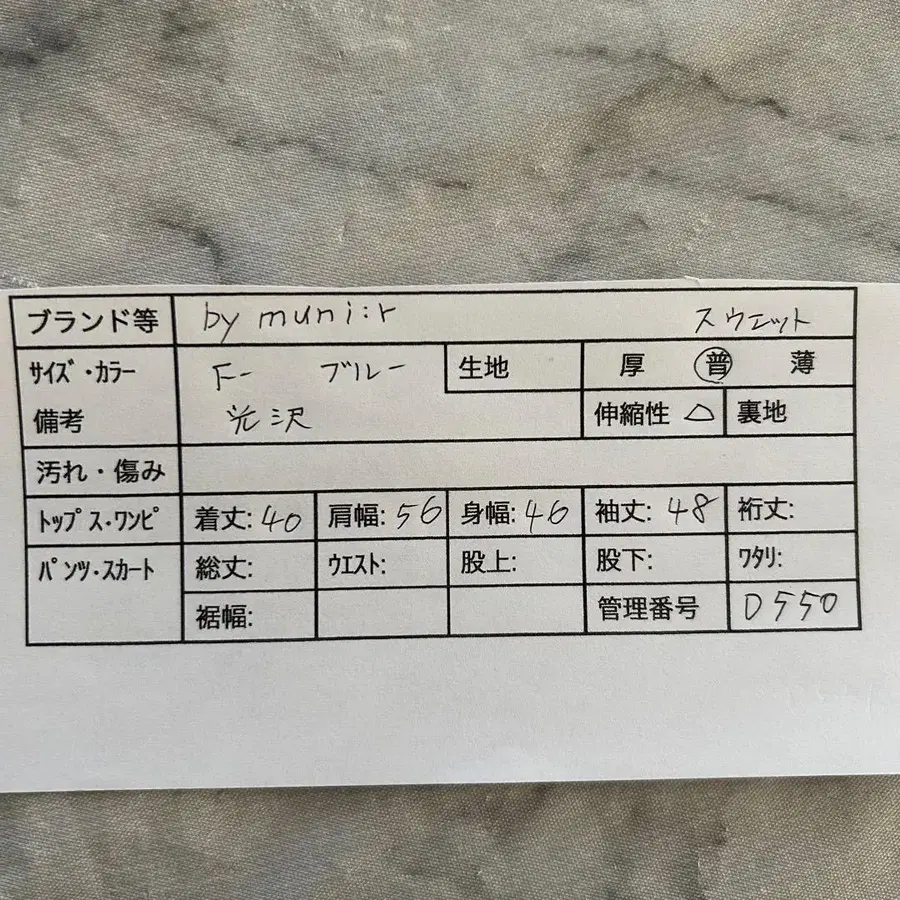 ブランド等 by muni:r スウェット
サイズ・カラー F- ブルー 生地 厚 普 薄
備考 光沢 伸縮性 △ 裏地
汚れ・傷み
トップス・ワンピ 着丈: 40 肩幅: 56 身幅: 46 袖丈: 48 裄丈:
パンツ・スカート 総丈: ウエスト: 股上: 股下: ワタリ:
裾幅: 管理番号 D550